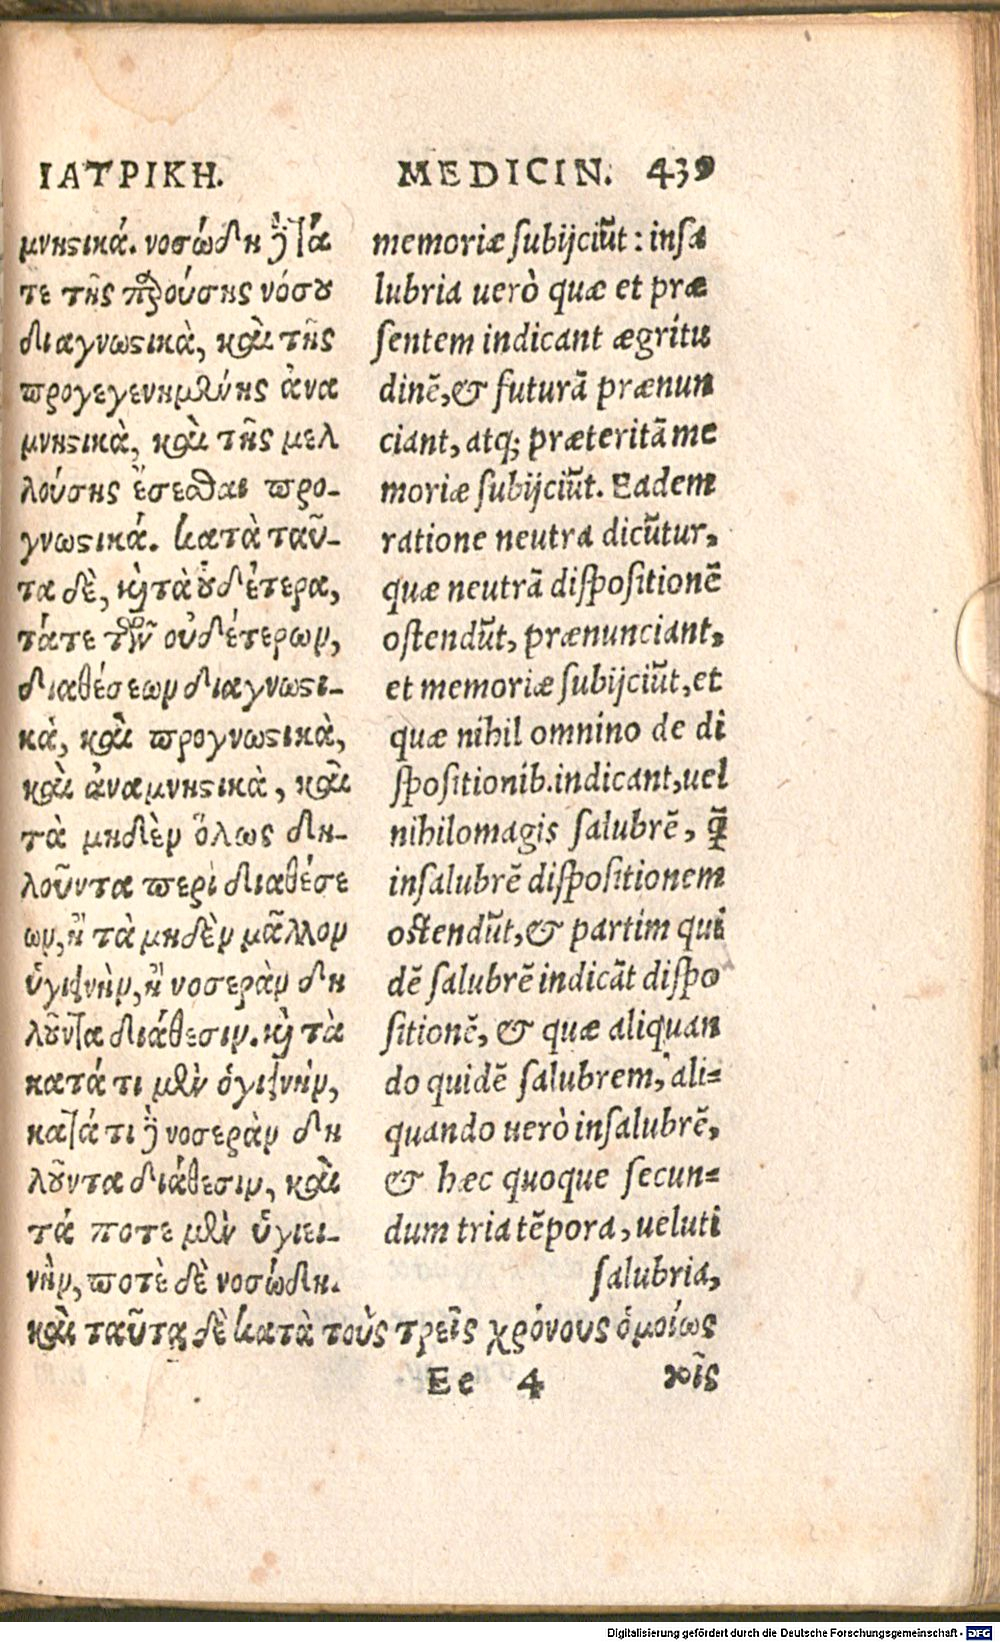 ΙΑΤΡΙΚΗ.
μνηϛικά. νοσώδη ἢ τά
τε τῆς παρούσης νόσου
διαγνωϛικὰ, καὶ τῆς
προγεγενημένης ἀνα
μνηϛικὰ, καὶ τῆς μελ
λούσης ἔσεσθαι προ-
γνωϛικά. κατὰ ταῦ-
τα δὲ, κὶ τὰ οὐδέτερα,
τάτε τῶν οὐδέτερων,
διαθέσεων διαγνωϛι-
κὰ, καὶ προγνωϛικὰ,
καὶ ἀναμνηϛικὰ, καὶ
τὰ μηδὲν ὅλως δη-
λοῦντα περὶ διαθέσε
ων, ἢ τὰ μηδὲν μᾶλλον
ὑγιεινὴν, ἢ νοσερὰν δη
λοῦντα διάθεσιν. κὶ τὰ
κατά τι μὲν ὑγιεινὴν,
κατά τι ἢ νοσερὰν δη
λοῦντα διάθεσιν, καὶ
τά ποτε μὲν ὑγιει-
νὴν, ποτὲ δὲ νοσώδη.
καὶ ταῦτα δὲ κατὰ τοὺς τρεῖς χρόνους ὁμοίως
MEDICIN. 439
memoriæ ſubijciūt : inſa
lubria uerò quæ et præ
ſentem indicant ægritu
dinē, & futurā prænun
ciant, atq; præteritā me
moriæ ſubijciūt. Eadem
ratione neutra dicūtur,
quæ neutrā diſpoſitionē
oſtendūt, prænunciant,
et memoriæ ſubijciūt, et
quæ nihil omnino de di
ſpoſitionib. indicant, uel
nihilomagis ſalubrē, q̄
inſalubrē diſpoſitionem
oſtendūt, & partim qui
dē ſalubrē indicāt diſpo
ſitionē, & quæ aliquan
do quidē ſalubrem, ali=
quando uerò inſalubrē,
& hæc quoque ſecun=
dum tria tēpora, ueluti
ſalubria,
Ee 4 τοῖς
Digitalisierung gefördert durch die Deutsche Forschungsgemeinschaft - DFG